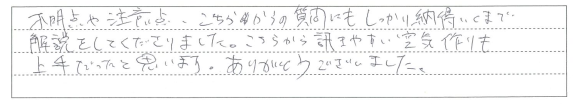 不明点や注意点、こちらからの質問にもしっかり納得いくまで
解説をしてくださりました。こちらから訊きやすい空気作りも
上手だったと思います。ありがとうございました。